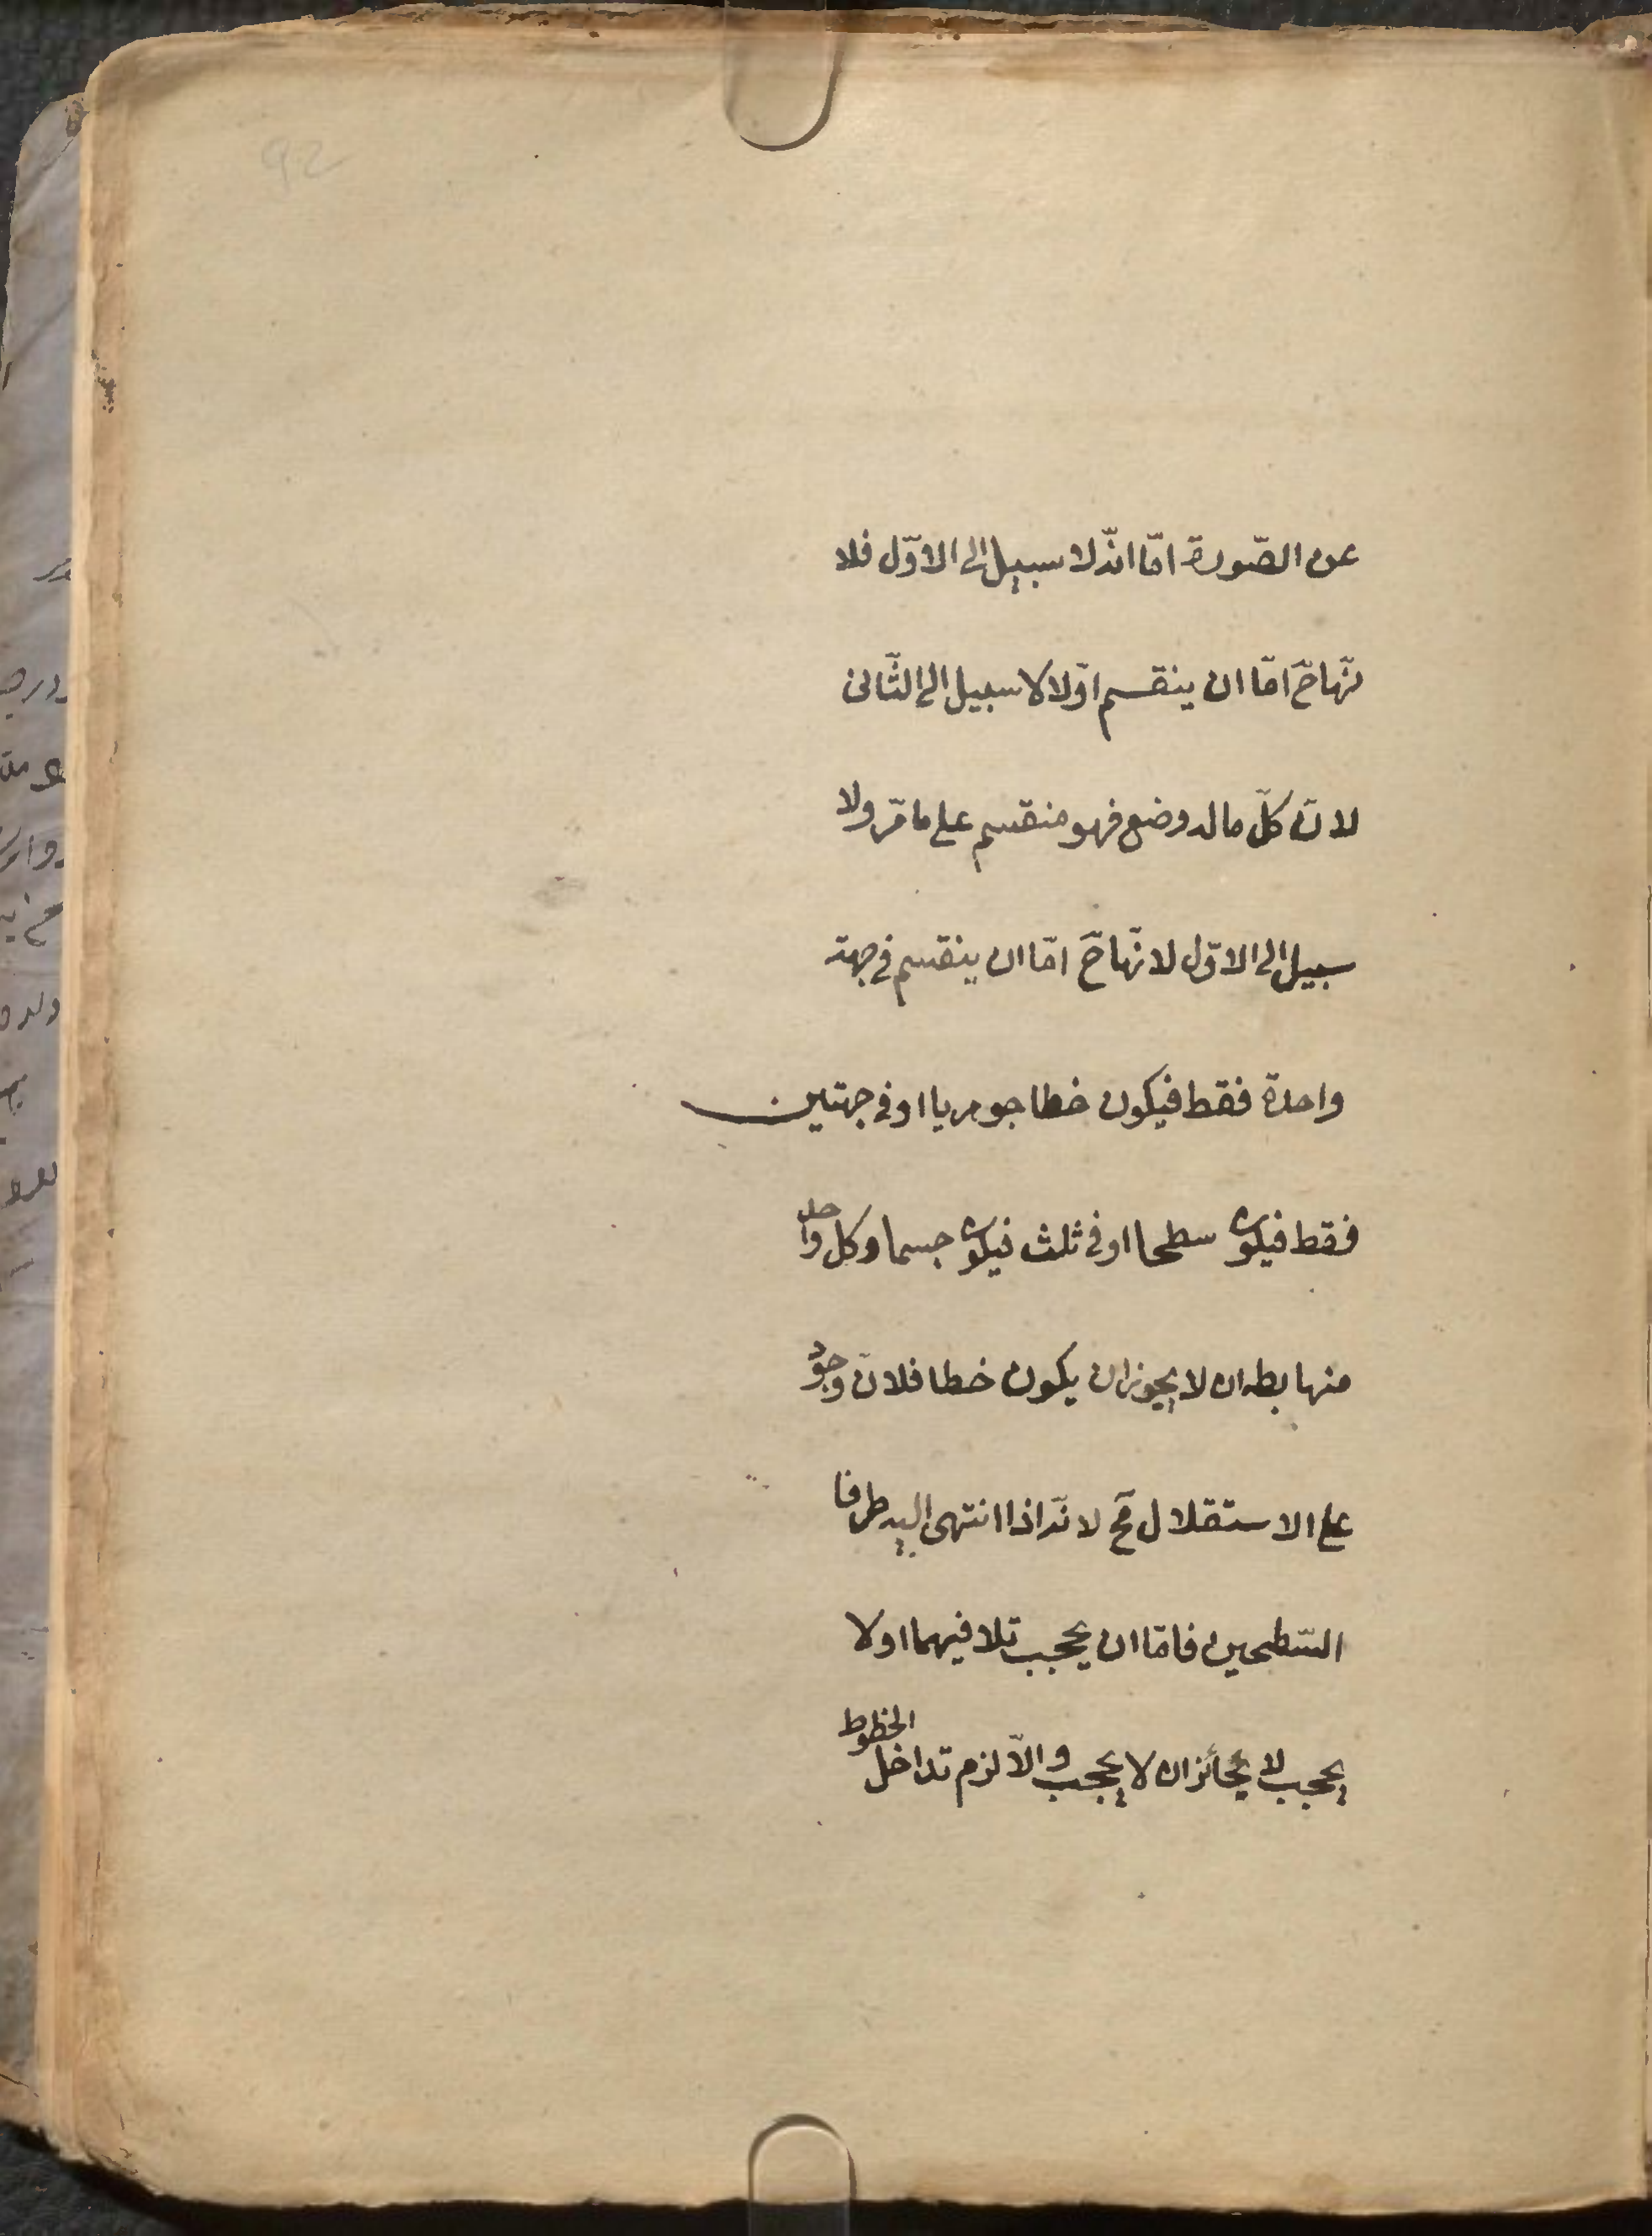 92
عن الصّورة امّا انّه لا سبيل الى الاوّل فلا
نّهاحّ امّا ان ينقسم اوّلا لا سبيل الى الثّانى
لانّ كلّ ماله وضع فهو منقسم على ما مرّ ولا
سبيل الى الاوّل لانّهاحّ امّا ان ينقسم فى جهة
واحدة فقط فيكون خطا جوهريا او فى جهتين
فقط فيكون سطحا او فى ثلث فيكون جسما وكل واحد
منها بط اه لا يجوز ان يكون خطا فلانّ وجود
على الاستقلال مح لانّه اذا انتهى اليه طرفا
السّطحين فامّا ان يحجب تلاقيهما اولا
يحجب لا جائز ان لا يحجب والّا لزم تداخل الخطوط